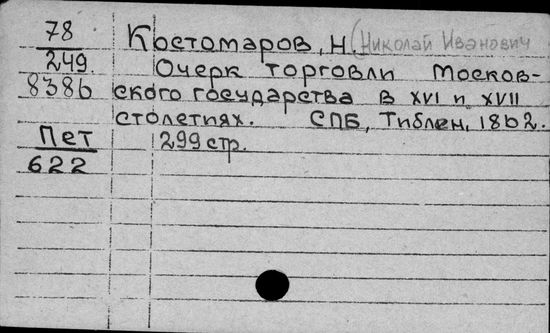 78
249.
8386
Костомаров, Н. (Николай Иванович
Очерк торговли Москов-
ского государства в XVI и XVII
столетиях. СПБ, Тиблен, 1862.
Пет
622
299 стр.